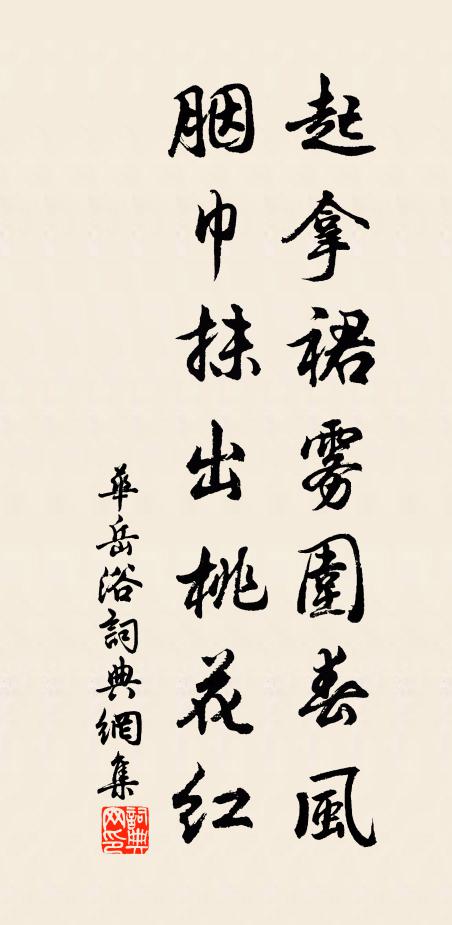 起拿裙雾圍春風
胭巾抹出桃花红
華岳浴詞典網集
詞典网印